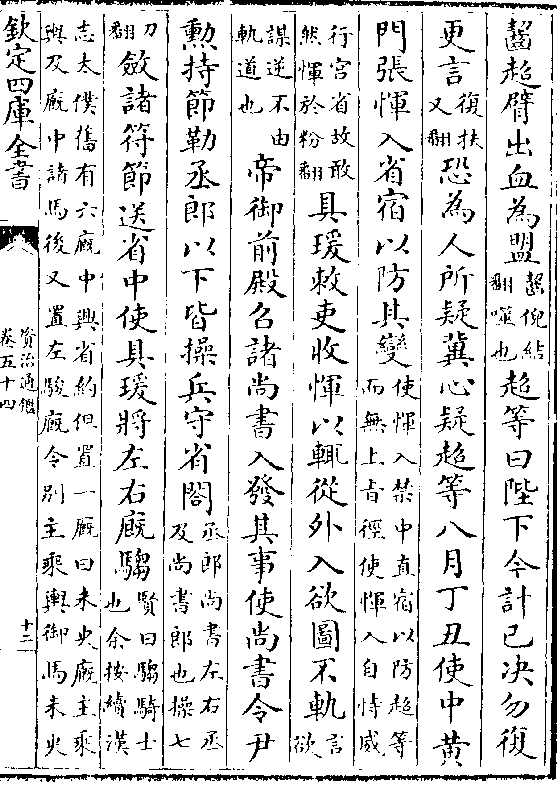 齧超臂出血為盟齧倪結翻噬也超等曰陛下今計已决勿復
更言復扶又翻恐為人所疑冀心疑超等八月丁丑使中黄
門張惲入省宿以防其變使惲入禁中直宿以防超等而無上旨徑使惲入自恃威
行宮省故敢然惲於粉翻具瑗敕吏收惲以輒從外入欲圖不軌言欲
謀逆不由軌道也帝御前殿召諸尚書入發其事使尚書令尹
勲持節勒丞郎以下皆操兵守省閣丞郎尚書左右丞及尚書郎也操七
刀翻歛諸符節送省中使具瑗將左右廐騶賢曰騶騎士也余按續漢
志太僕舊有六廐中興省約但置一廐曰未央廐主乘輿及廐中諸馬後又置左駿廐令别主乘輿御馬未央
欽定四庫全書
資治通鑑
卷五十四
十二